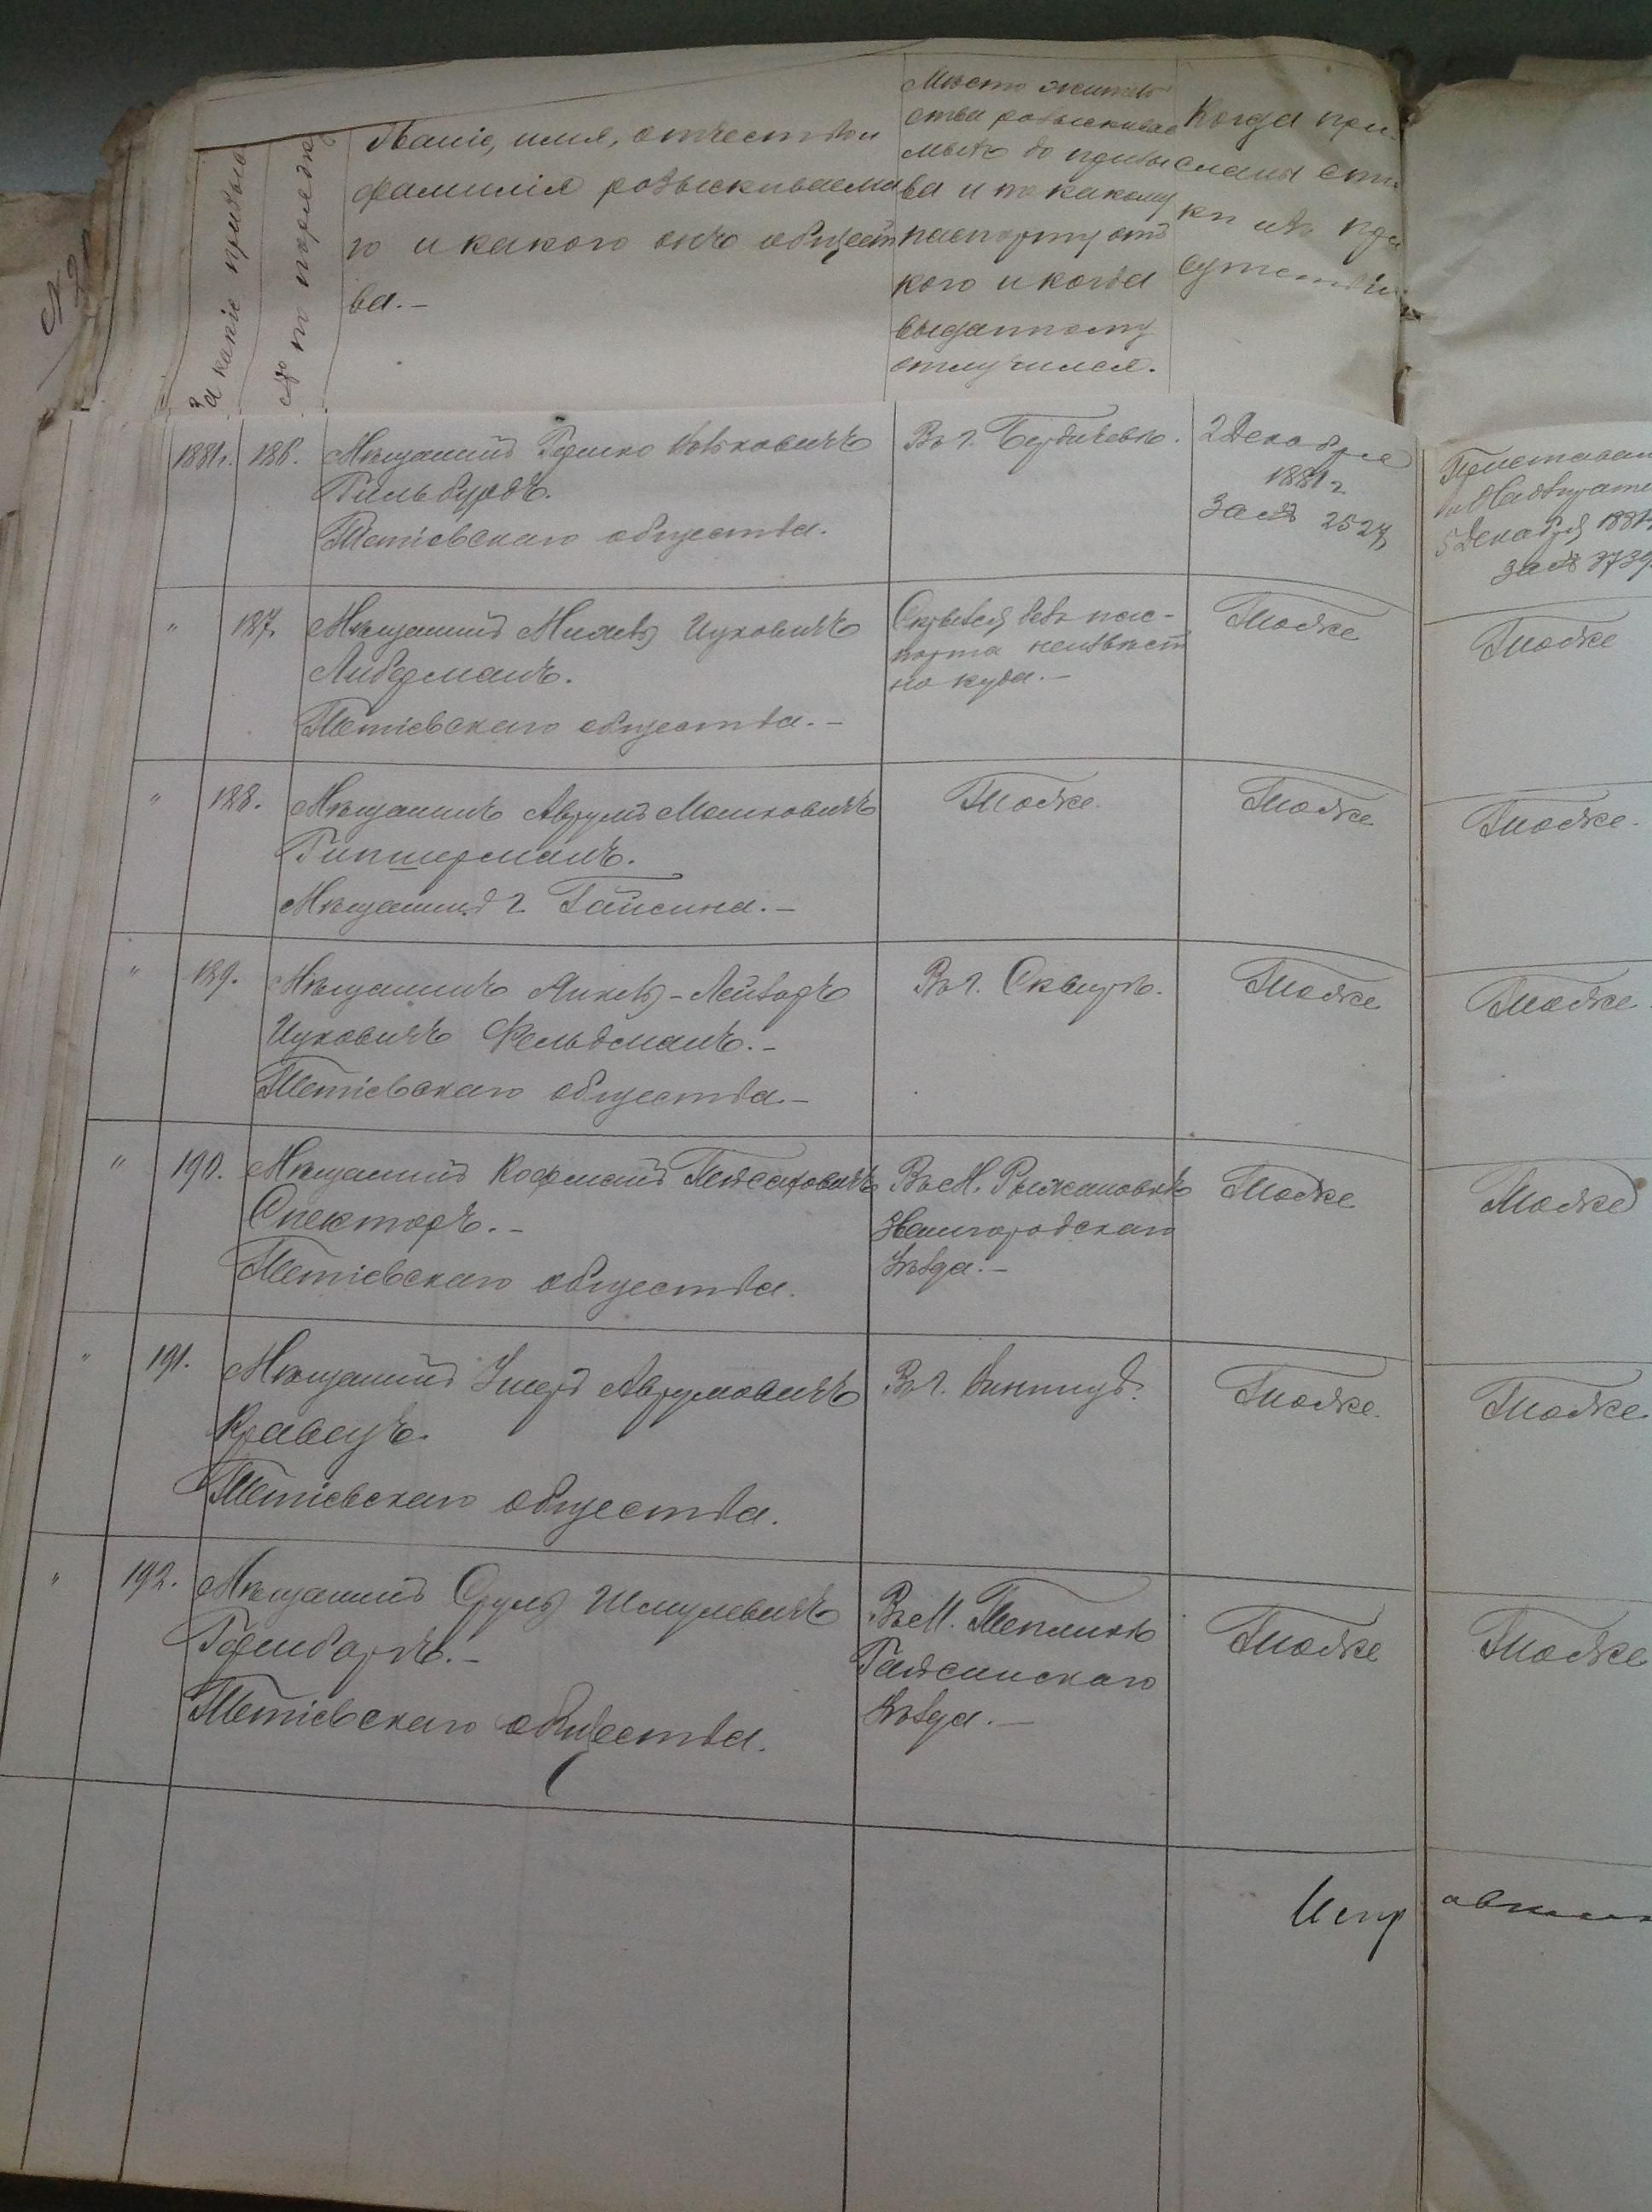 За какіе призывы
№ по порядку
Званіе, имя, отчество и
фамилія розыскиваема
го и какого онъ общест
ва.-
Мѣсто житель
ства розыскивае
мыхъ до призы
ва и по какому
паспорту отъ
кого и когда
выданному
отлучился.
Когда при-
сланы спис
ки изъ при
сутствія
1881г.
186.
Мѣщанинъ Гершко
Гильбурдъ.
Тетіевскаго общества.
Въ г. Бердичевѣ.
2 Декабря
1881 г
За № 2527
Приставам
и Надзирате
5 Декабря 1881
за № 3739
"
187.
Мѣщанинъ Ицковичъ
Либерманъ.
Тетіевскаго общества.-
Скрылся безъ пас-
порта неизвѣст
но куда.-
Тоже
Тоже
"
188.
Мѣщанинъ Аврумъ Мошковичъ
Гипшерманъ.
Мѣщанинъ г Гайсина.-
Тоже.
Тоже
Тоже.
"
189.
Мѣщанинъ Янкель-Лейзоръ
Ицковичъ Фельдманъ.-
Тетіевскаго общества.-
Въ г. Сквирѣ.
Тоже
Тоже
"
190.
Мѣщанинъ Кофманъ Пейсаховичъ
Спекторъ.-
Тетіевскаго общества.
Въ М. Рыжановкѣ
Звенигородскаго
Уѣзда.-
Тоже
Тоже
"
191.
Мѣщанинъ Ушеръ Аврумовичъ
Кравецъ.
Тетіевскаго общества.
Въ г. Винницѣ.
Тоже.
Тоже
"
192.
Мѣщанинъ Сруль Шмулевичъ
Тетіевскаго общества.
Въ М. Тепликѣ
Гайсинскаго
Уѣзда.-
Тоже
Тоже
Исправник